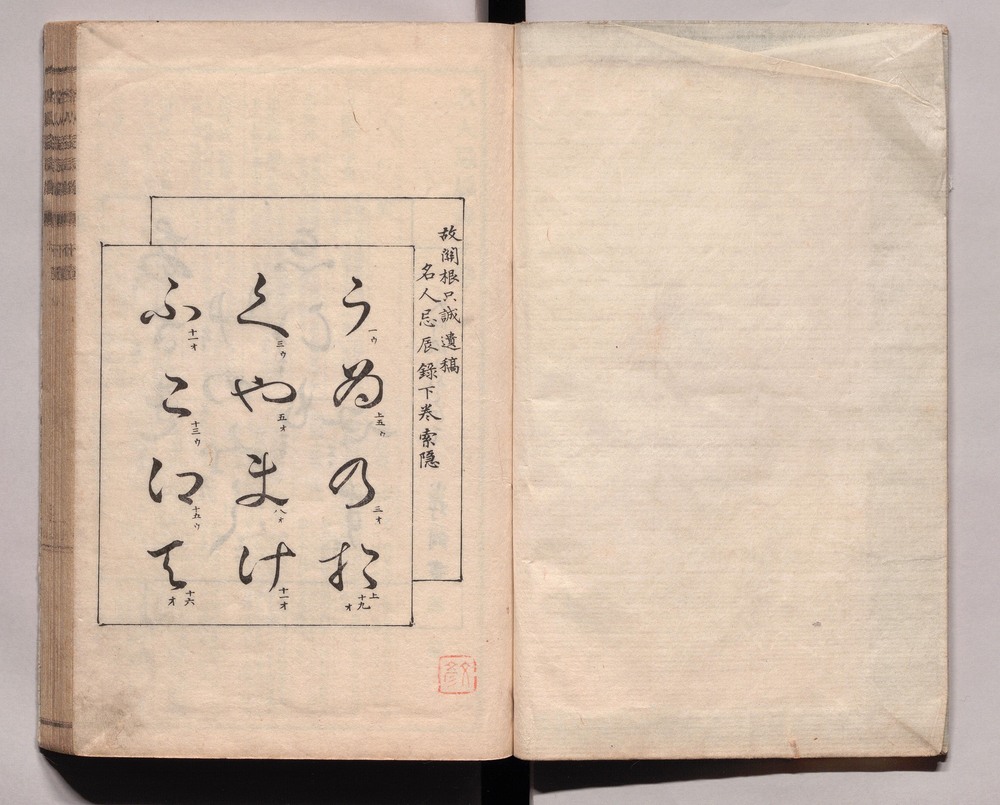 故關根只誠遺稿
名人忌辰録下巻索隠
う 一ウ
為 上五ウ
の 三オ
於 上十九オ
く 三ウ
や 五オ
ま 八オ
け 十一オ
ふ 十一オ
こ 十三ウ
江 十五ウ
て 十六オ